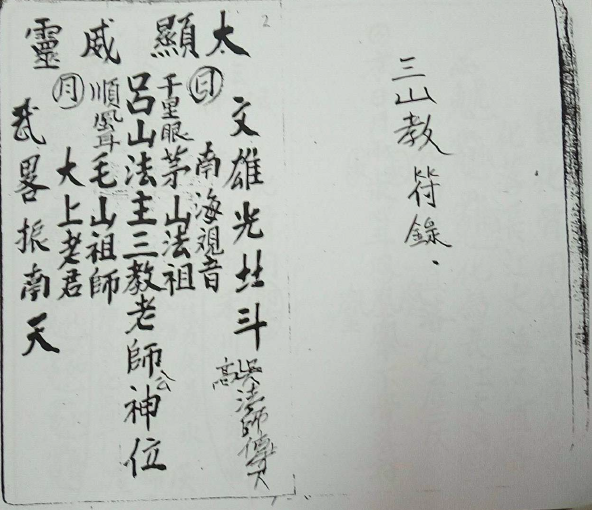 三山教符錄.
2
太顯威靈
文雄光北斗
法師傳
日
南海觀音
千里眼 茅山法祖
呂山法主三教老師公神位
順風耳 毛山祖師
月
大上老君
武畧振南天